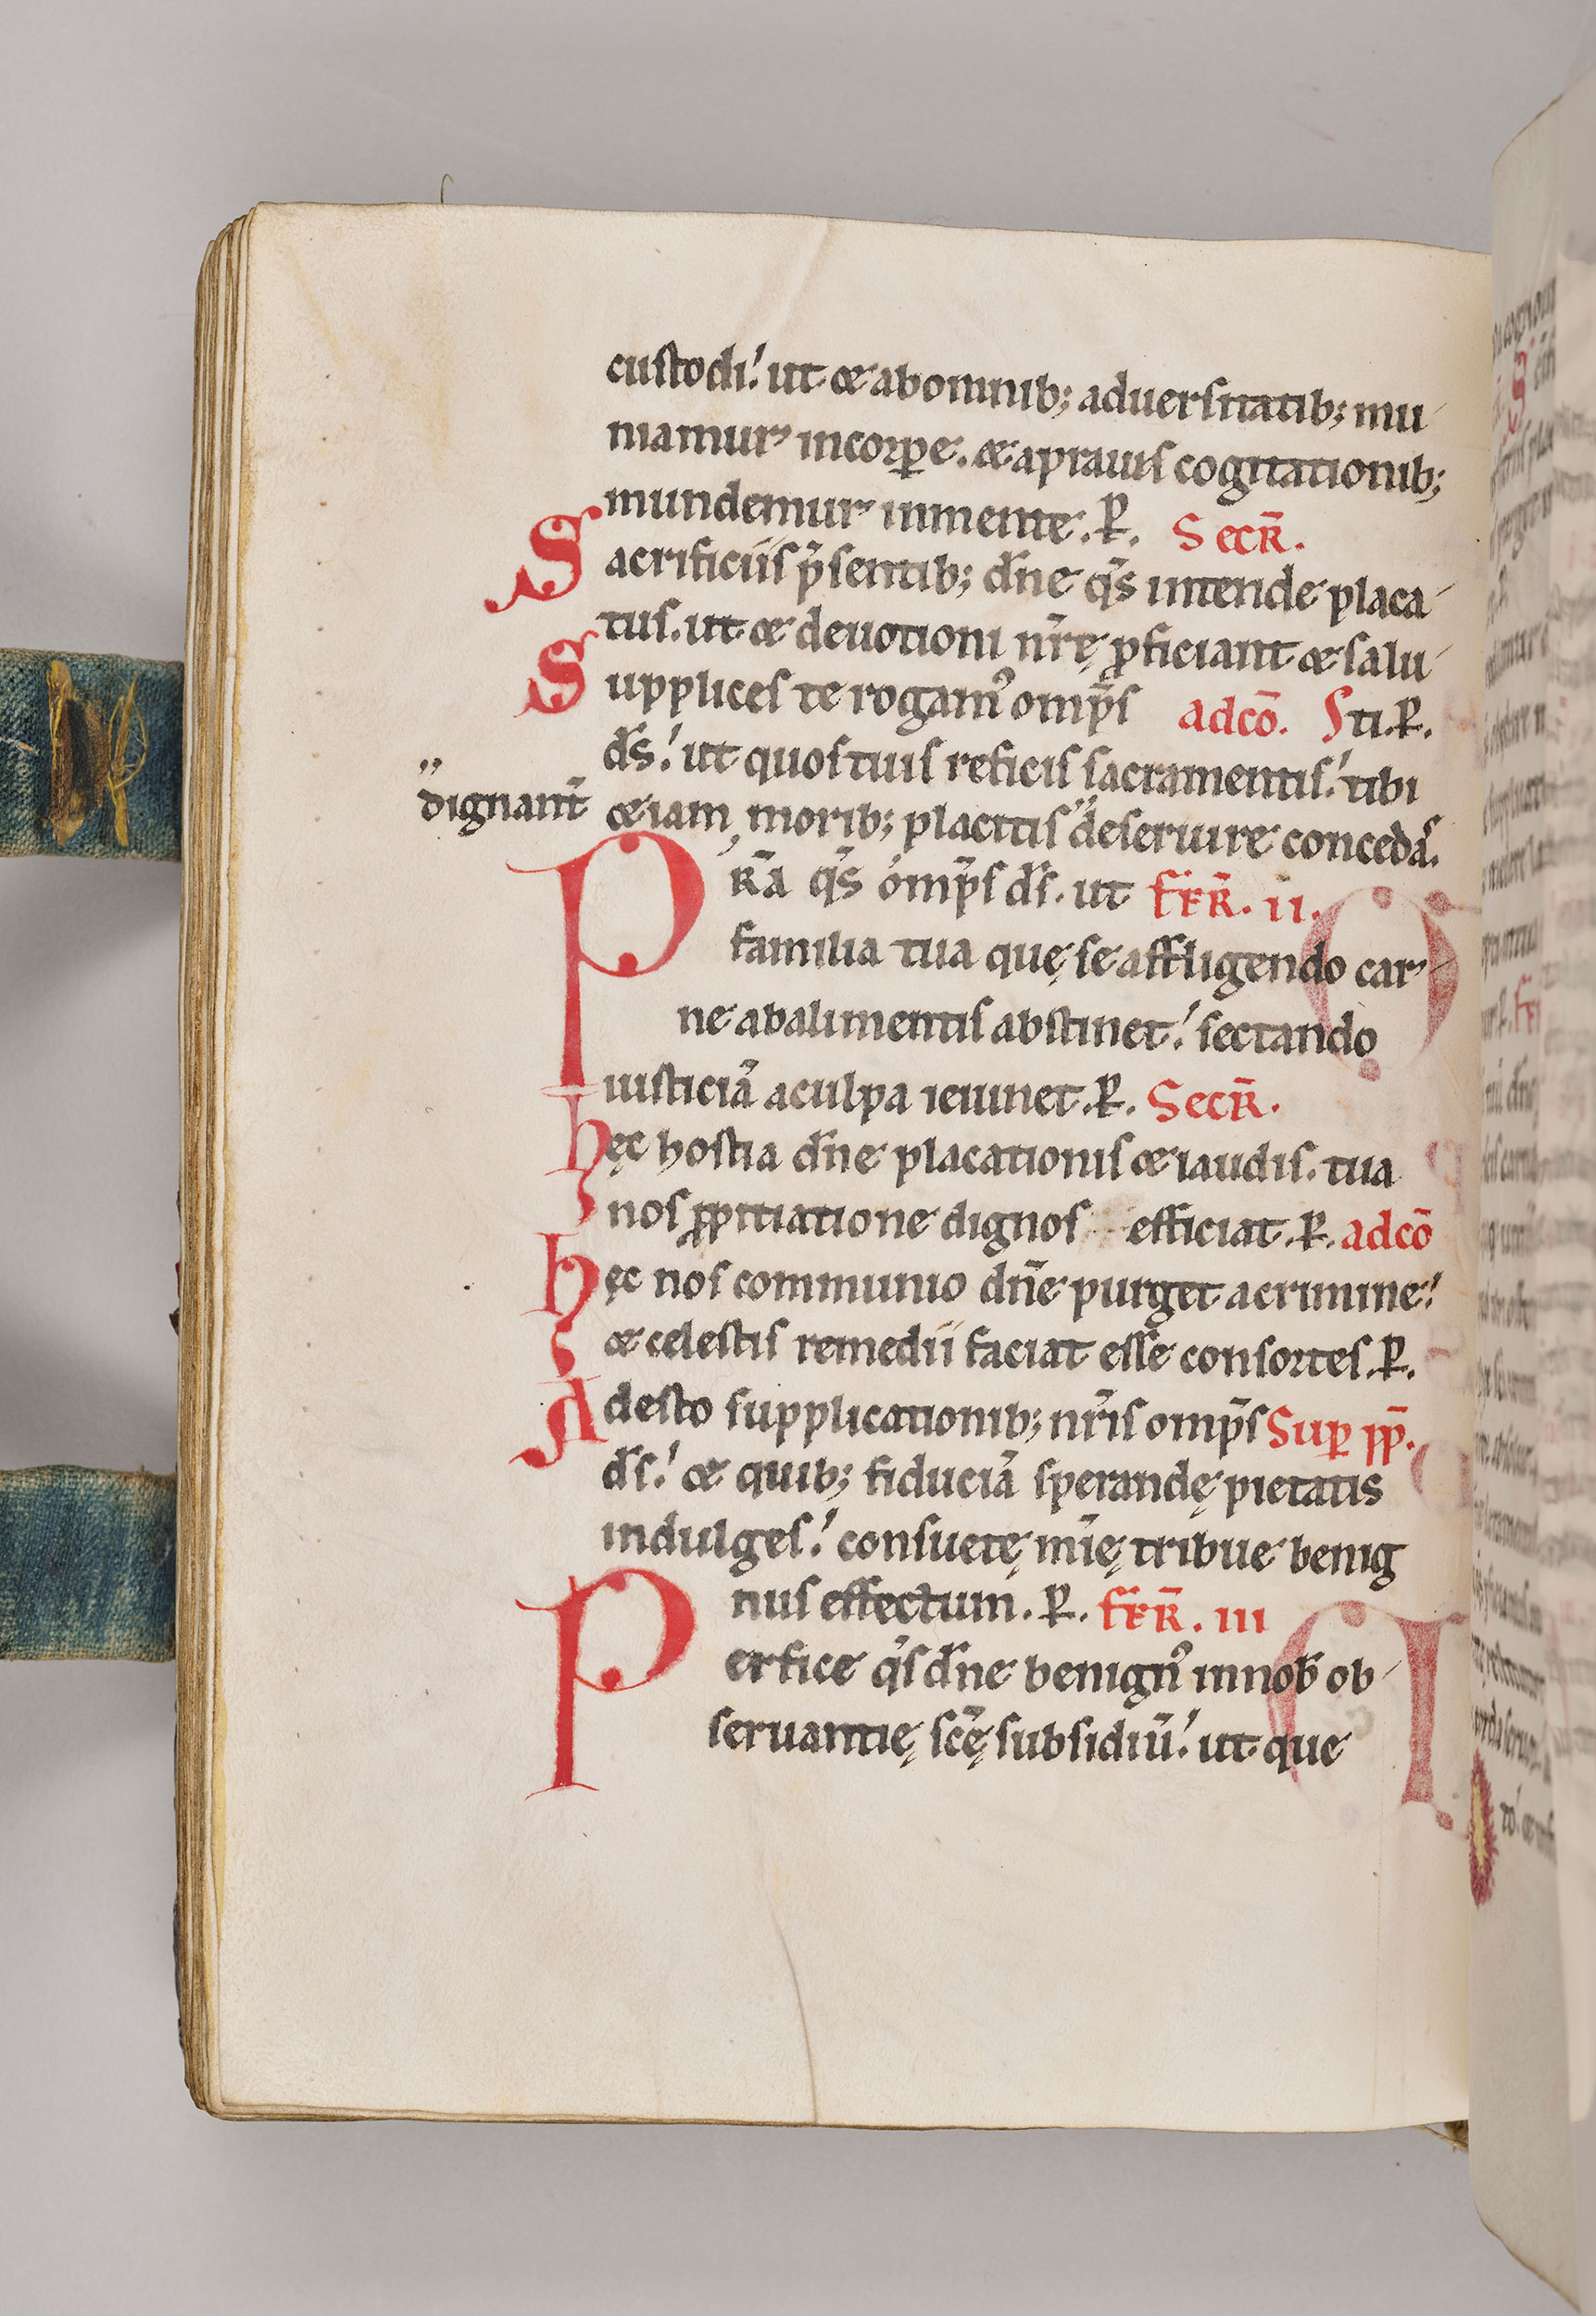 custodi. ut & abomnib; aduersitatib; mu
niamur incorꝑe. & aprauis cogitationib;
mundemur inmente. P̄. Secr̄.
Sacrificiis p̄sentib; dn̄e qs̄ intende placa
tus. ut & deuotioni nr̄ę ꝓficiant & salu
Supplices te rogam᾽ omp̄s adcō. sti. P̄.
ds̄. ut quos tuis reficis sacramentis. tibi
dignant̄ &iam moribꝫ placitis deseruire concedas.
PR̄A qs̄ omp̄s ds̄. ut FER̄. II.
familia tua quę se affligendo car
ne abalimentis abstinet. sectando
iusticiā aculpa ieiunet. P̄. Secr̄.
hęc hostia dn̄e placationis & laudis. tua
nos ꝓpitiatione dignos efficiat. P̄. adcō
hęc nos communio dn̄e purget acrimine.
& celestis remedii faciat esse consortes. P̄.
Adesto supplicationib; nr̄is omp̄s Suꝑ pp̄.
ds̄. & quib; fiduciā sperandę pietatis
indulges. consuetę mīę tribue benig
nus effectum. P̄. FER̄. III
Perfice qs̄ dn̄e benign᾽ innob̄ ob
seruantię scę̄ subsidiū. ut que